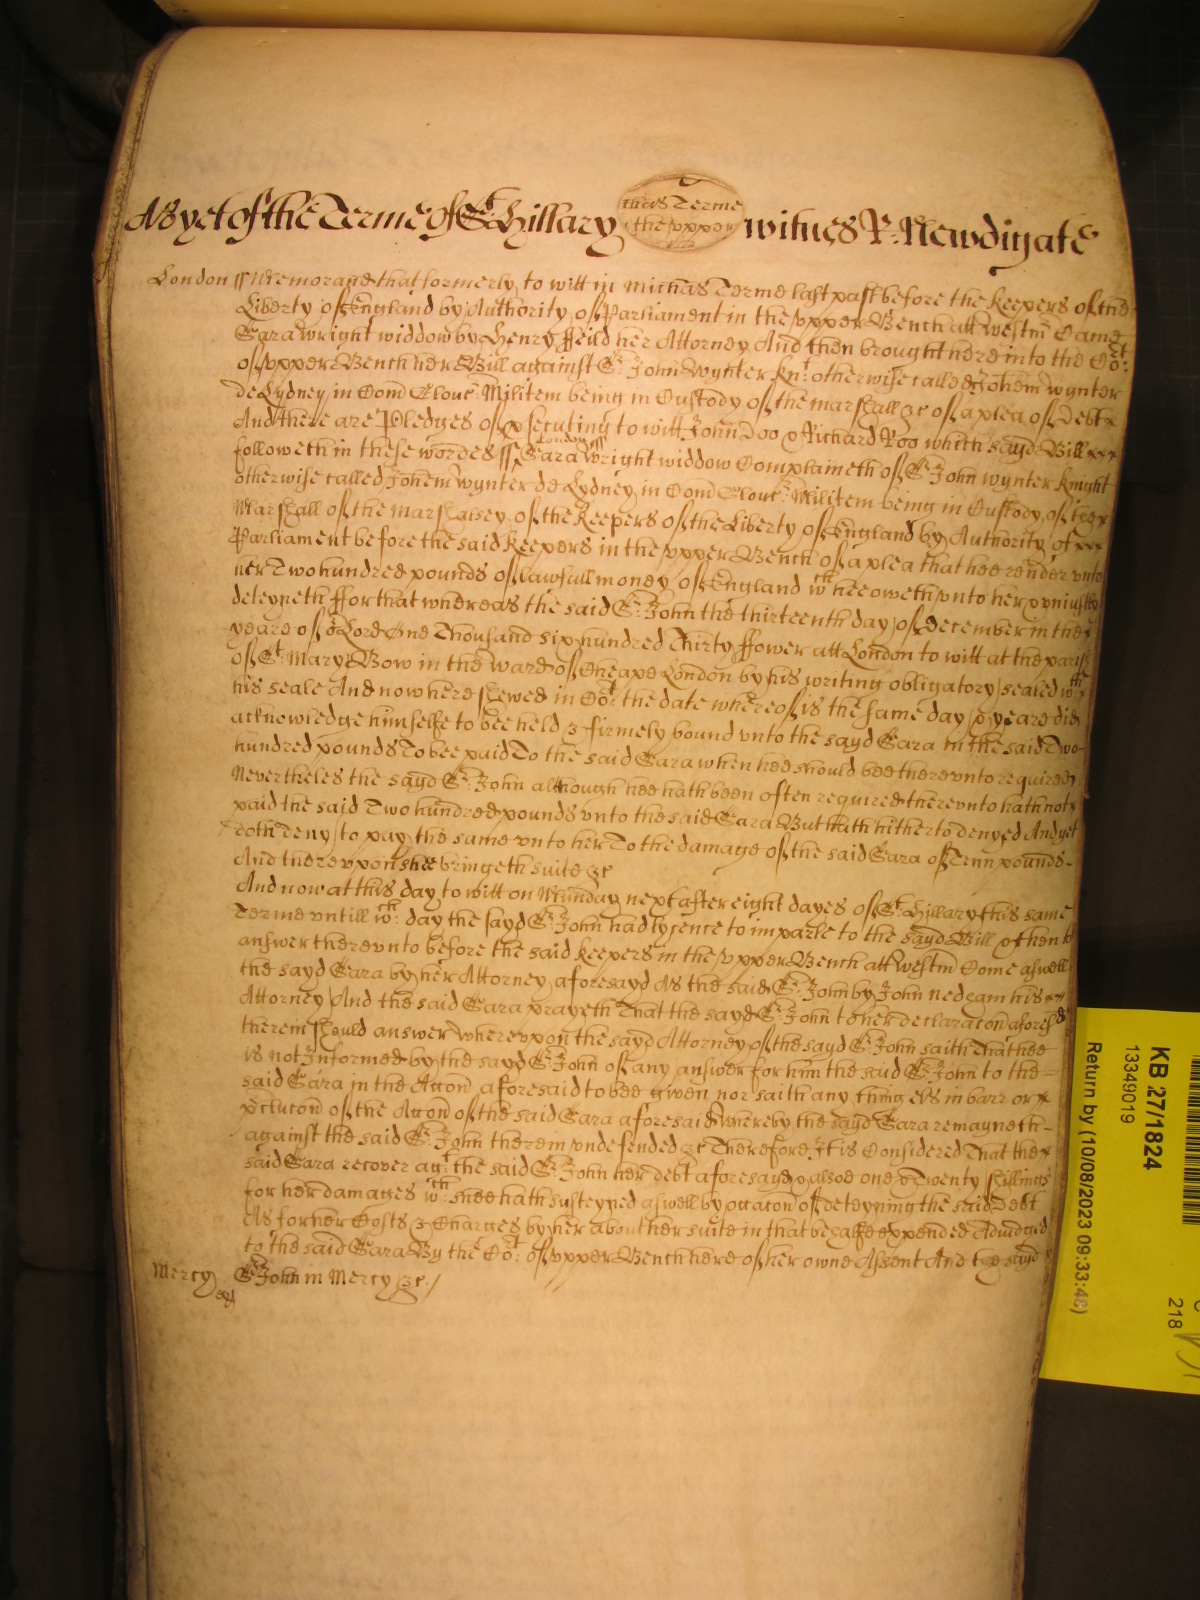 As yet of the Terme of St Hillary witnes R: Newdigate
mas Terme
the upper
London ss Memorand that formerly to witt in Michas Terme last past before the Keepers of the
Liberty of England by Authority of Parliament in the upper Bench att Westm Came
Sara wright widdow by Henry ffeild her Attorney And then brought here into the Cot:
of upper Bench her Bill against Sr John Wynter Knt otherwise called Johem wynter
de Lydney in Com Glouc Militem being in Custody of the marshall &c of a plea of Debt
And there are Pledges of psecuting to witt John Doo & Richard Roo which sayd Bill
followeth in these wordes ss London ss Sara Wright widdow Complaineth of Sr John wynter Knight
otherwise called Johem wynter de Lydney in Com Glouc Militem being in Custody of the
Marshall of the marshalsey of the Keepers of the Liberty of England by Authority of
Parliament before the said Keepers in the upper Bench of a plea that hee render unto
her Two hundred pounds of lawfull money of England wch hee oweth unto her & uniustly
deteyneth ffor that whereas the said Sr John the thirteenth day of December in the
yeare of or Lord One Thousand six hundred Thirty ffower att London to witt at the parish
of St Mary Bow in the ward of Cheape London by his writing obligatory sealed wth
his seale And now here shewed in Cot the date whereof is the same day & yeare did
acknowledge himselfe to bee held & firmely bound unto the sayd Sara in the said Two
hundred pounds To bee paid To the said Sara when hee should bee thereunto required
Nevertheles the sayd Sr John although hee hath been often required thereunto hath not
paid the said Two hundred pounds unto the said Sara But hath hitherto denyed And yet
doth deny to pay the same unto her To the damage of the said Sara of Tenn pounds
And thereupon shee bringeth suite &c
And now at this day to witt on Munday next after eight dayes of St Hillary this same
Terme untill wch day the sayd Sr John had lycence to imparle to the sayd Bill & then to
answer thereunto before the said keepers in the upper Bench att Westm Come aswell
the sayd Sara by her Attorney aforesayd As the said Sr John by John Nedham his
Attorney And the said Sara prayeth That the sayd Sr John to her declaracon aforesd
therein should answer whereupon the sayd Attorney of the sayd Sr John saith That hee
is not Informed by the sayd Sr John of any answer for him the said Sr John to the
said Sara in the Accon aforesaid to bee given nor saith any thing els in barr or
pclucon of the Accon of the said Sara aforesaid whereby the sayd Sara remayneth
against the said Sr John therein undefended &c Therefore It is Considered That the
said Sara recover agt the said Sr John her debt aforesayd & alsoe one & Twenty shillings
for her damages wch shee hath susteyned aswell by occacon of deteyning the said Debt
As for her Costs & Charges by her about her suite in that behalfe expended Adiudged
to the said Sara By the Cot: of upper Bench here of her owne Assent And the sayd
Mercy Sr John in Mercy &c
KB 27/1824
13349019
Return by (10/08/2023 09:33:48)
218